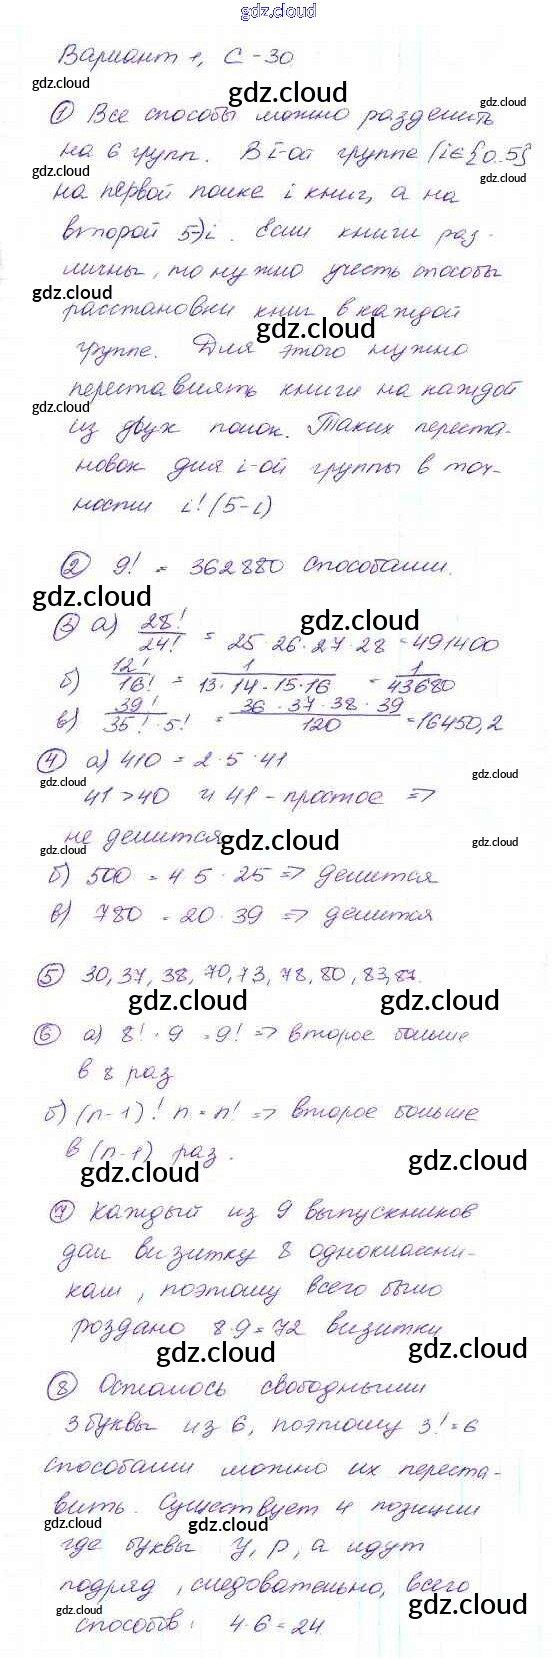 gdz.cloud
Вариант 1, С-30
gdz.cloud
gdz.cloud
① Все способы можно разделить
на 6 групп. В i-ой группе (i∈{0..5}
gdz.cloud
gdz.cloud
на первой полке i книг, а на
второй 5)i. Если книги раз-
личны, то нужно учесть способы
gdz.cloud
расстановки книг в каждой
gdz.cloud
группе. Для этого нужно
переставлять книги на каждой
gdz.cloud
из двух полок. Таких переста-
новок для i-ой группы в точ-
ности i!(5-i)
② 9! = 362880 способами.
gdz.cloud
gdz.cloud
③ а) 28!/24! = 25·26·27·28 = 491400
б) 12!/16! = 1/13·14·15·16 = 1/43680
в) 39!/35!·5! = 36·37·38·39/120 = 16450,2
④ а) 410 = 2·5·41
gdz.cloud
gdz.cloud
41>40 и 41 - простое =>
не делится
gdz.cloud
gdz.cloud
gdz.cloud
б) 500 = 4·5·25 => делится
в) 780 = 20·39 => делится
⑤ 30, 37, 38, 70, 73, 78, 80, 83, 87.
gdz.cloud
gdz.cloud
⑥ а) 8!·9 = 9! => второе больше
в 8 раз
б) (n-1)! n = n! => второе больше
в (n-1) раз.
gdz.cloud
gdz.cloud
⑦ Каждый из 9 выпускников
дал визитку 8 одноклассни-
кам, поэтому всего было
роздано 8·9=72 визитки
gdz.cloud
gdz.cloud
⑧ Осталось свободными
3 буквы из 6, поэтому 3!=6
способами можно их переста-
вить. Существует 4 позиции
gdz.cloud
gdz.cloud
где буквы у, р, а идут
подряд, следовательно, всего
gdz.cloud
gdz.cloud
способов: 4·6=24.